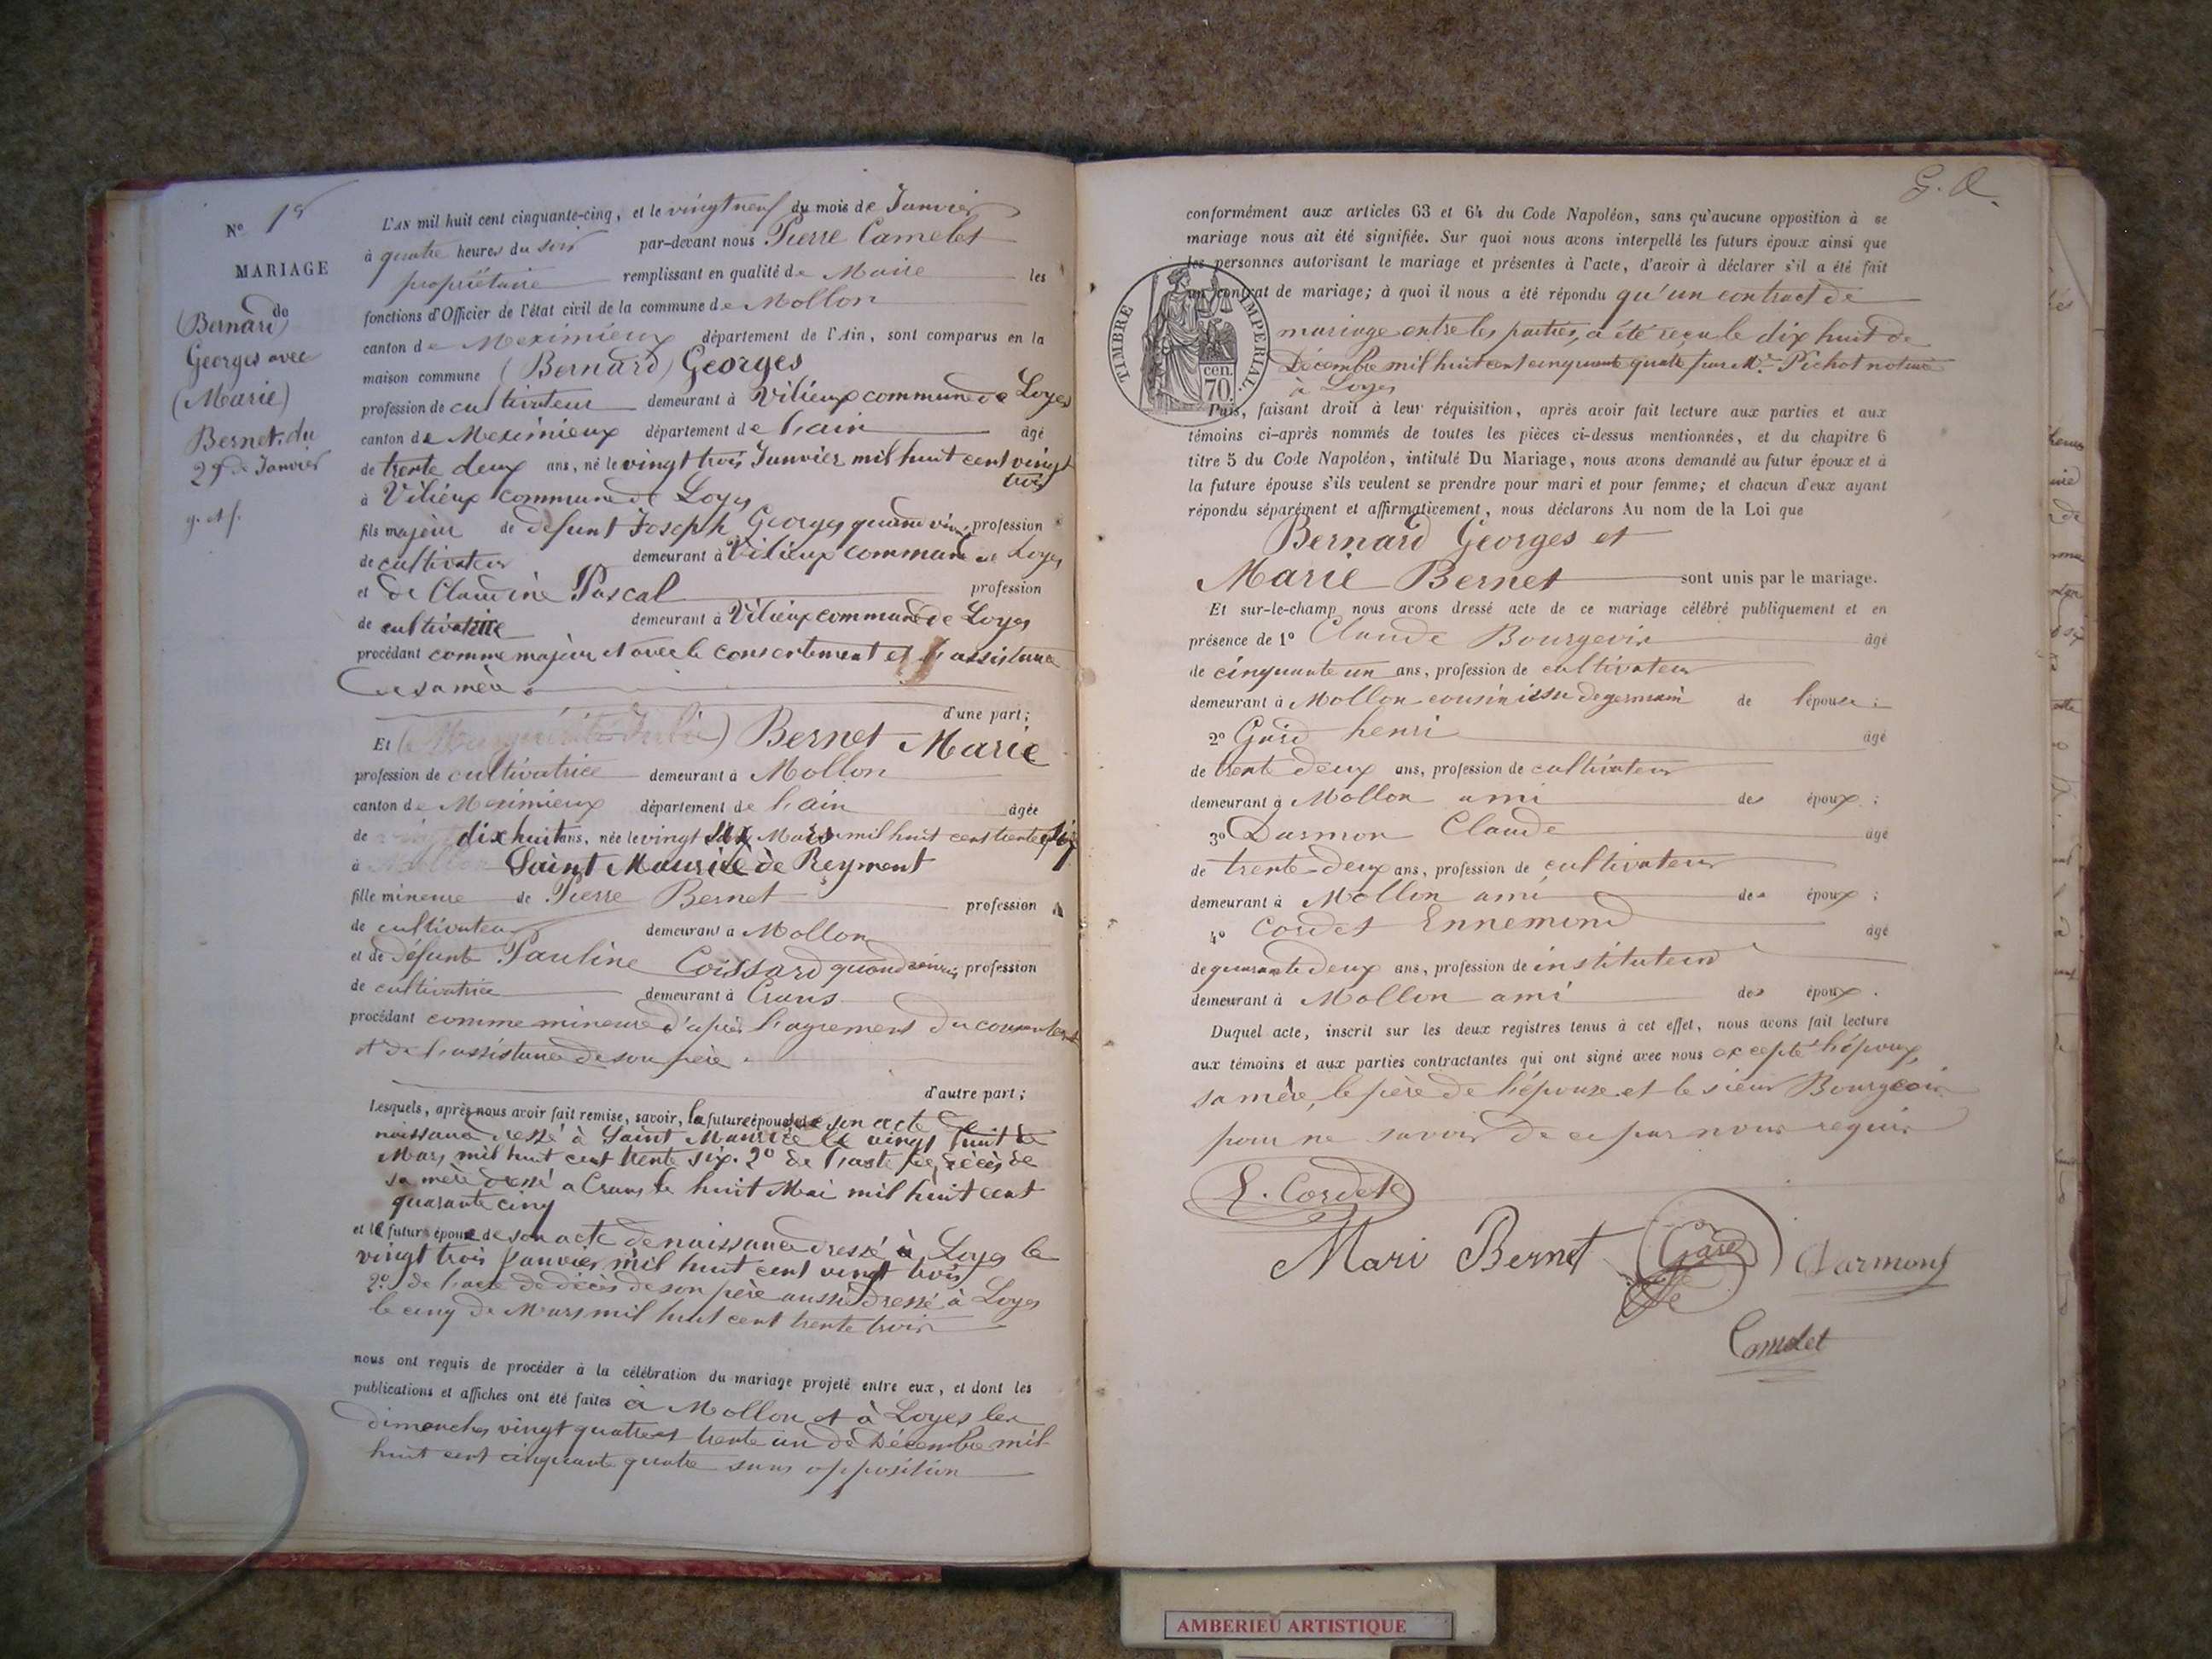 N° 1er
MARIAGE
de
(Bernard)
Georges avec
(Marie)
Bernet, du
29 de Janvier
g. et f.
L'AN mil huit cent cinquante-cinq, et le vingt neuf du mois de Janvier
à quatre heures du soir par-devant nous Pierre Camelet
propriétaire remplissant en qualité de Maire les
fonctions d'Officier de l'état civil de la commune de Mollon
canton de Meximieux département de l'Ain, sont comparus en la
maison commune (Bernard) Georges
profession de cultivateur demeurant à Vilieux commune de Loyes
canton de Meximieux département de l'ain âgé
de trente deux ans, né le vingt trois Janvier mil huit cent vingt
trois
à Vilieux commune de Loyes
fils majeur de défunt Joseph Georges quand vivait, profession
de cultivateur demeurant à Vilieux commune de Loyes
et de Claudine Pascal profession
de cultivatrice demeurant à Vilieux commune de Loyes
procédant comme majeur et avec le consentement et l'assistance
de sa mère
d'une part;
Et Bernet Marie
profession de cultivatrice demeurant à Mollon
canton de Meximieux département de l'ain âgée
de dix huit ans, née le vingt Mars mil huit cent trente six
à Saint Maurice de Reyment
fille mineure de Pierre Bernet profession
de cultivateur demeurant à Mollon
et de défunte Pauline Coissard quand vivait, profession
de cultivatrice demeurant à Crans
procédant comme mineure d'après l'agrement du consentement
et de l'assistance de son père
d'autre part;
Lesquels, après nous avoir fait remise, savoir, la future épouse de son acte de
naissance dressé à Saint Maurice le vingt huit de
Mars mil huit cent trente six. 2° de l'acte de décès de
sa mère dressé a Crans le huit Mai mil huit cent
quarante cinq
et le futur époux de son acte de naissance dressé à Loyes le
vingt trois Janvier mil huit cent vingt trois
2° de l'acte de décès de son père aussi dressé à Loyes
le cinq de Mars mil huit cent trente trois
nous ont requis de procéder à la célébration du mariage projeté entre eux, et dont les
publications et affiches ont été faites à Mollon et à Loyes les
dimanches vingt quatre et trente un de Décembre mil
huit cent cinquante quatre sans opposition
G. A.
conformément aux articles 63 et 64 du Code Napoléon, sans qu'aucune opposition à ce
mariage nous ait été signifiée. Sur quoi nous avons interpellé les futurs époux ainsi que
les personnes autorisant le mariage et présentes à l'acte, d'avoir à déclarer s'il a été fait
un contrat de mariage; à quoi il nous a été répondu qu'un contract de
mariage entre les parties, a été reçu le dix huit de
Décembre mil huit cent cinquante quatre par Me Pichot notaire
à Loyes
TIMBRE IMPERIAL.
cen.
70.
Puis, faisant droit à leur réquisition, après avoir fait lecture aux parties et aux
témoins ci-après nommés de toutes les pièces ci-dessus mentionnées, et du chapitre 6
titre 5 du Code Napoléon, intitulé Du Mariage, nous avons demandé au futur époux et à
la future épouse s'ils veulent se prendre pour mari et pour femme; et chacun d'eux ayant
répondu séparément et affirmativement, nous déclarons Au nom de la Loi que
Bernard Georges et
Marie Bernet sont unis par le mariage.
Et sur-le-champ nous avons dressé acte de ce mariage célébré publiquement et en
présence de 1° Claude Bourgeoir âgé
de cinquante un ans, profession de cultivateur
demeurant à Mollon cousin issu de germain de l'épouse;
2° Gard henri âgé
de trente deux ans, profession de cultivateur
demeurant à Mollon ami des époux;
3° Darmon Claude âgé
de trente-deux ans, profession de cultivateur
demeurant à Mollon ami des époux;
4° Cordet Ennemond âgé
de quarante deux ans, profession de instituteur
demeurant à Mollon ami des époux.
Duquel acte, inscrit sur les deux registres tenus à cet effet, nous avons fait lecture
aux témoins et aux parties contractantes qui ont signé avec nous excepté l'époux,
sa mère, le père de l'épouse et le sieur Bourgeoir
pour ne savoir de ce par nous requis
E. Cordet
Mari Bernet Gard Darmont
Camelet
AMBERIEU ARTISTIQUE